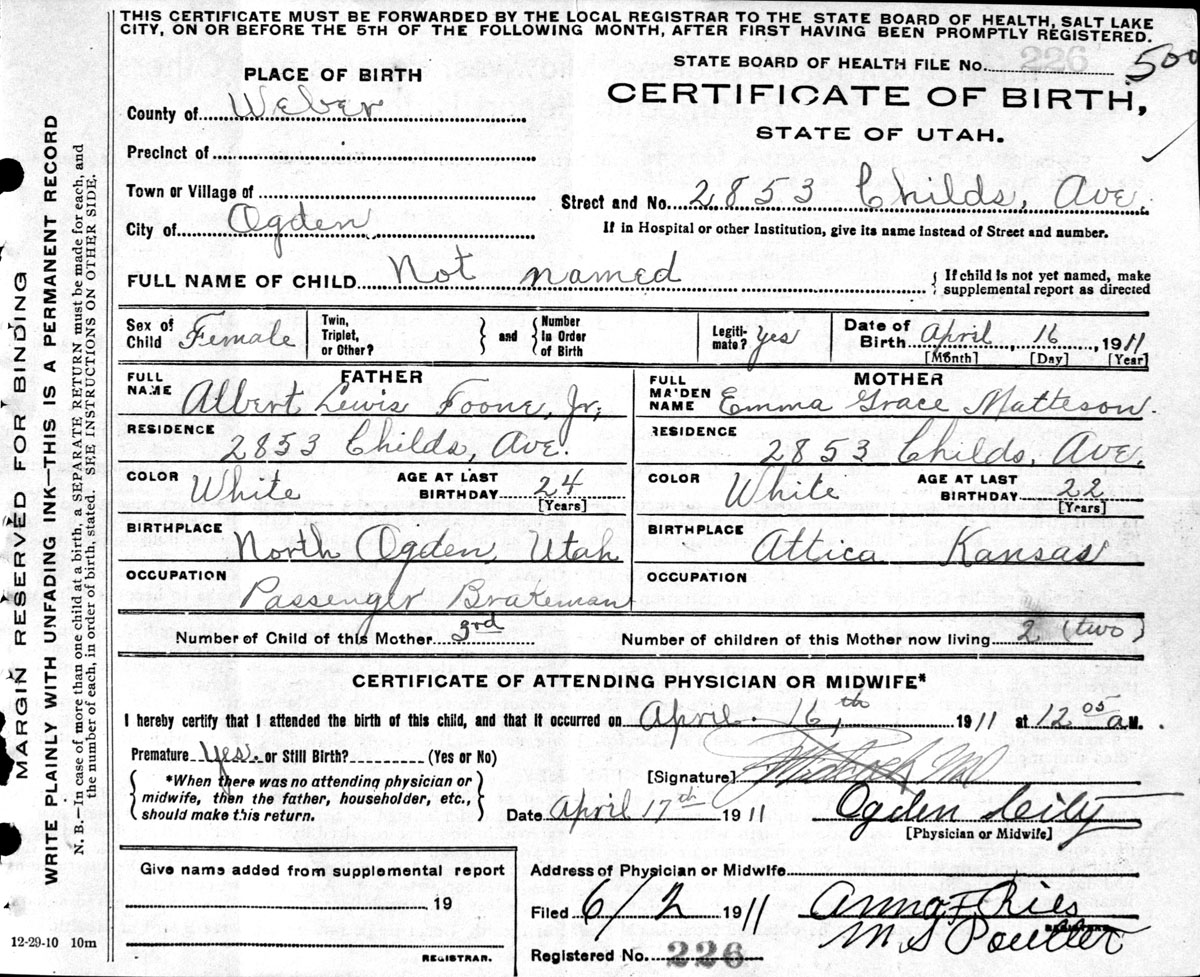 THIS CERTIFICATE MUST BE FORWARDED BY THE LOCAL REGISTRAR TO THE STATE BOARD OF HEALTH, SALT LAKE
CITY, ON OR BEFORE THE 5TH OF THE FOLLOWING MONTH, AFTER FIRST HAVING BEEN PROMPTLY REGISTERED.
MARGIN RESERVED FOR BINDING
WRITE PLAINLY WITH UNFADING INK—THIS IS A PERMANENT RECORD
N. B.—In case of more than one child at a birth, a SEPARATE RETURN must be made for each, and
the number of each, in order of birth, stated. SEE INSTRUCTIONS ON OTHER SIDE.
STATE BOARD OF HEALTH FILE No. 226 500
PLACE OF BIRTH
CERTIFICATE OF BIRTH,
STATE OF UTAH.
County of Weber
Precinct of
Town or Village of
Street and No. 2853 Childs, Ave.
City of Ogden
If in Hospital or other Institution, give its name instead of Street and number.
FULL NAME OF CHILD Not named { If child is not yet named, make
supplemental report as directed
Sex of Child Female Twin, Triplet, or Other? } and { Number In Order of Birth Legiti- mate? Yes Date of Birth April 16, 1911
[Month] [Day] [Year]
FATHER MOTHER
FULL NAME Albert Lewis Foone, Jr. FULL MAIDEN NAME Emma Grace Matteson.
RESIDENCE 2853 Childs, Ave. RESIDENCE 2853 Childs, Ave.
COLOR White AGE AT LAST BIRTHDAY 24 [Years] COLOR White AGE AT LAST BIRTHDAY 22 [Years]
BIRTHPLACE North Ogden, Utah BIRTHPLACE Attica Kansas
OCCUPATION Passenger Brakeman OCCUPATION
Number of Child of this Mother 3rd Number of children of this Mother now living 2 (two)
CERTIFICATE OF ATTENDING PHYSICIAN OR MIDWIFE*
I hereby certify that I attended the birth of this child, and that it occurred on April 16th 1911 at 12 05 a M.
Premature Yes. or Still Birth? (Yes or No)
*When there was no attending physician or
midwife, then the father, householder, etc.,
should make this return.
[Signature]
Date April 17th 1911 Ogden City
[Physician or Midwife]
Give name added from supplemental report
19
REGISTRAR.
12-29-10 10m
Address of Physician or Midwife
Filed 6/2 1911 Anna F Ries
M S Poulter
REGISTRAR.
Registered No. 226